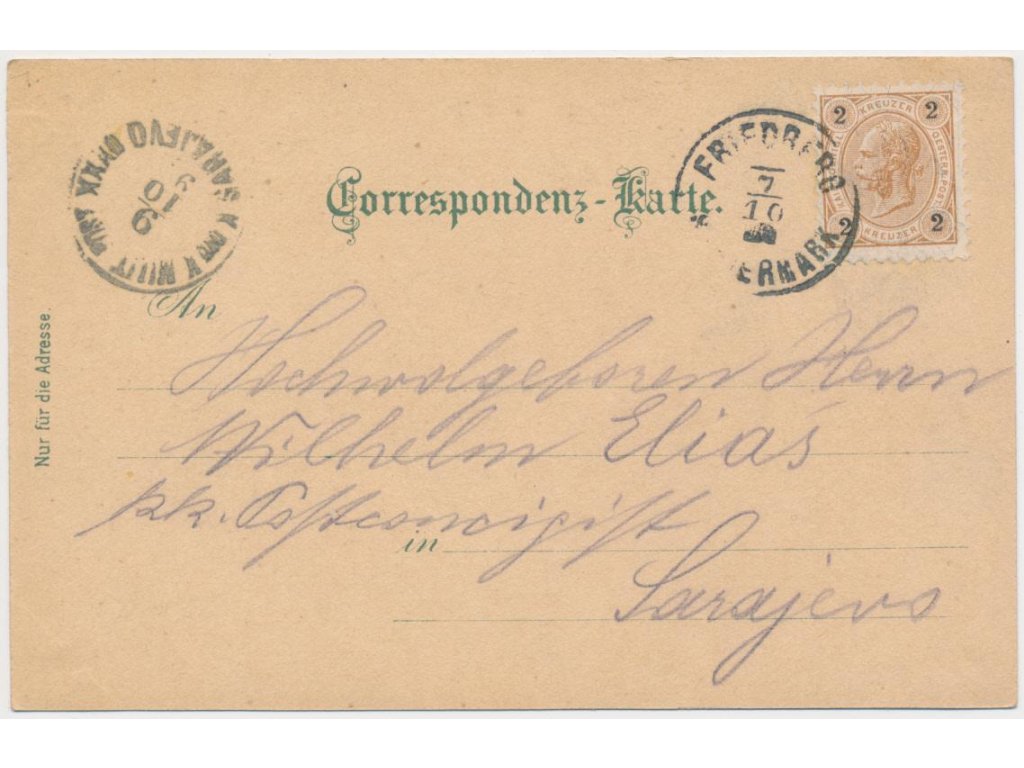 Correspondenz-Karte.
FRIEDBERG
7
10
2 KREUZER 2
2 KREUZER 2
SARAJEVO
9
10
An
Hochwolgeboren Herrn
Wilhelm Eliás
kk. Postconcipist
in
Sarajevo
Nur für die Adresse.